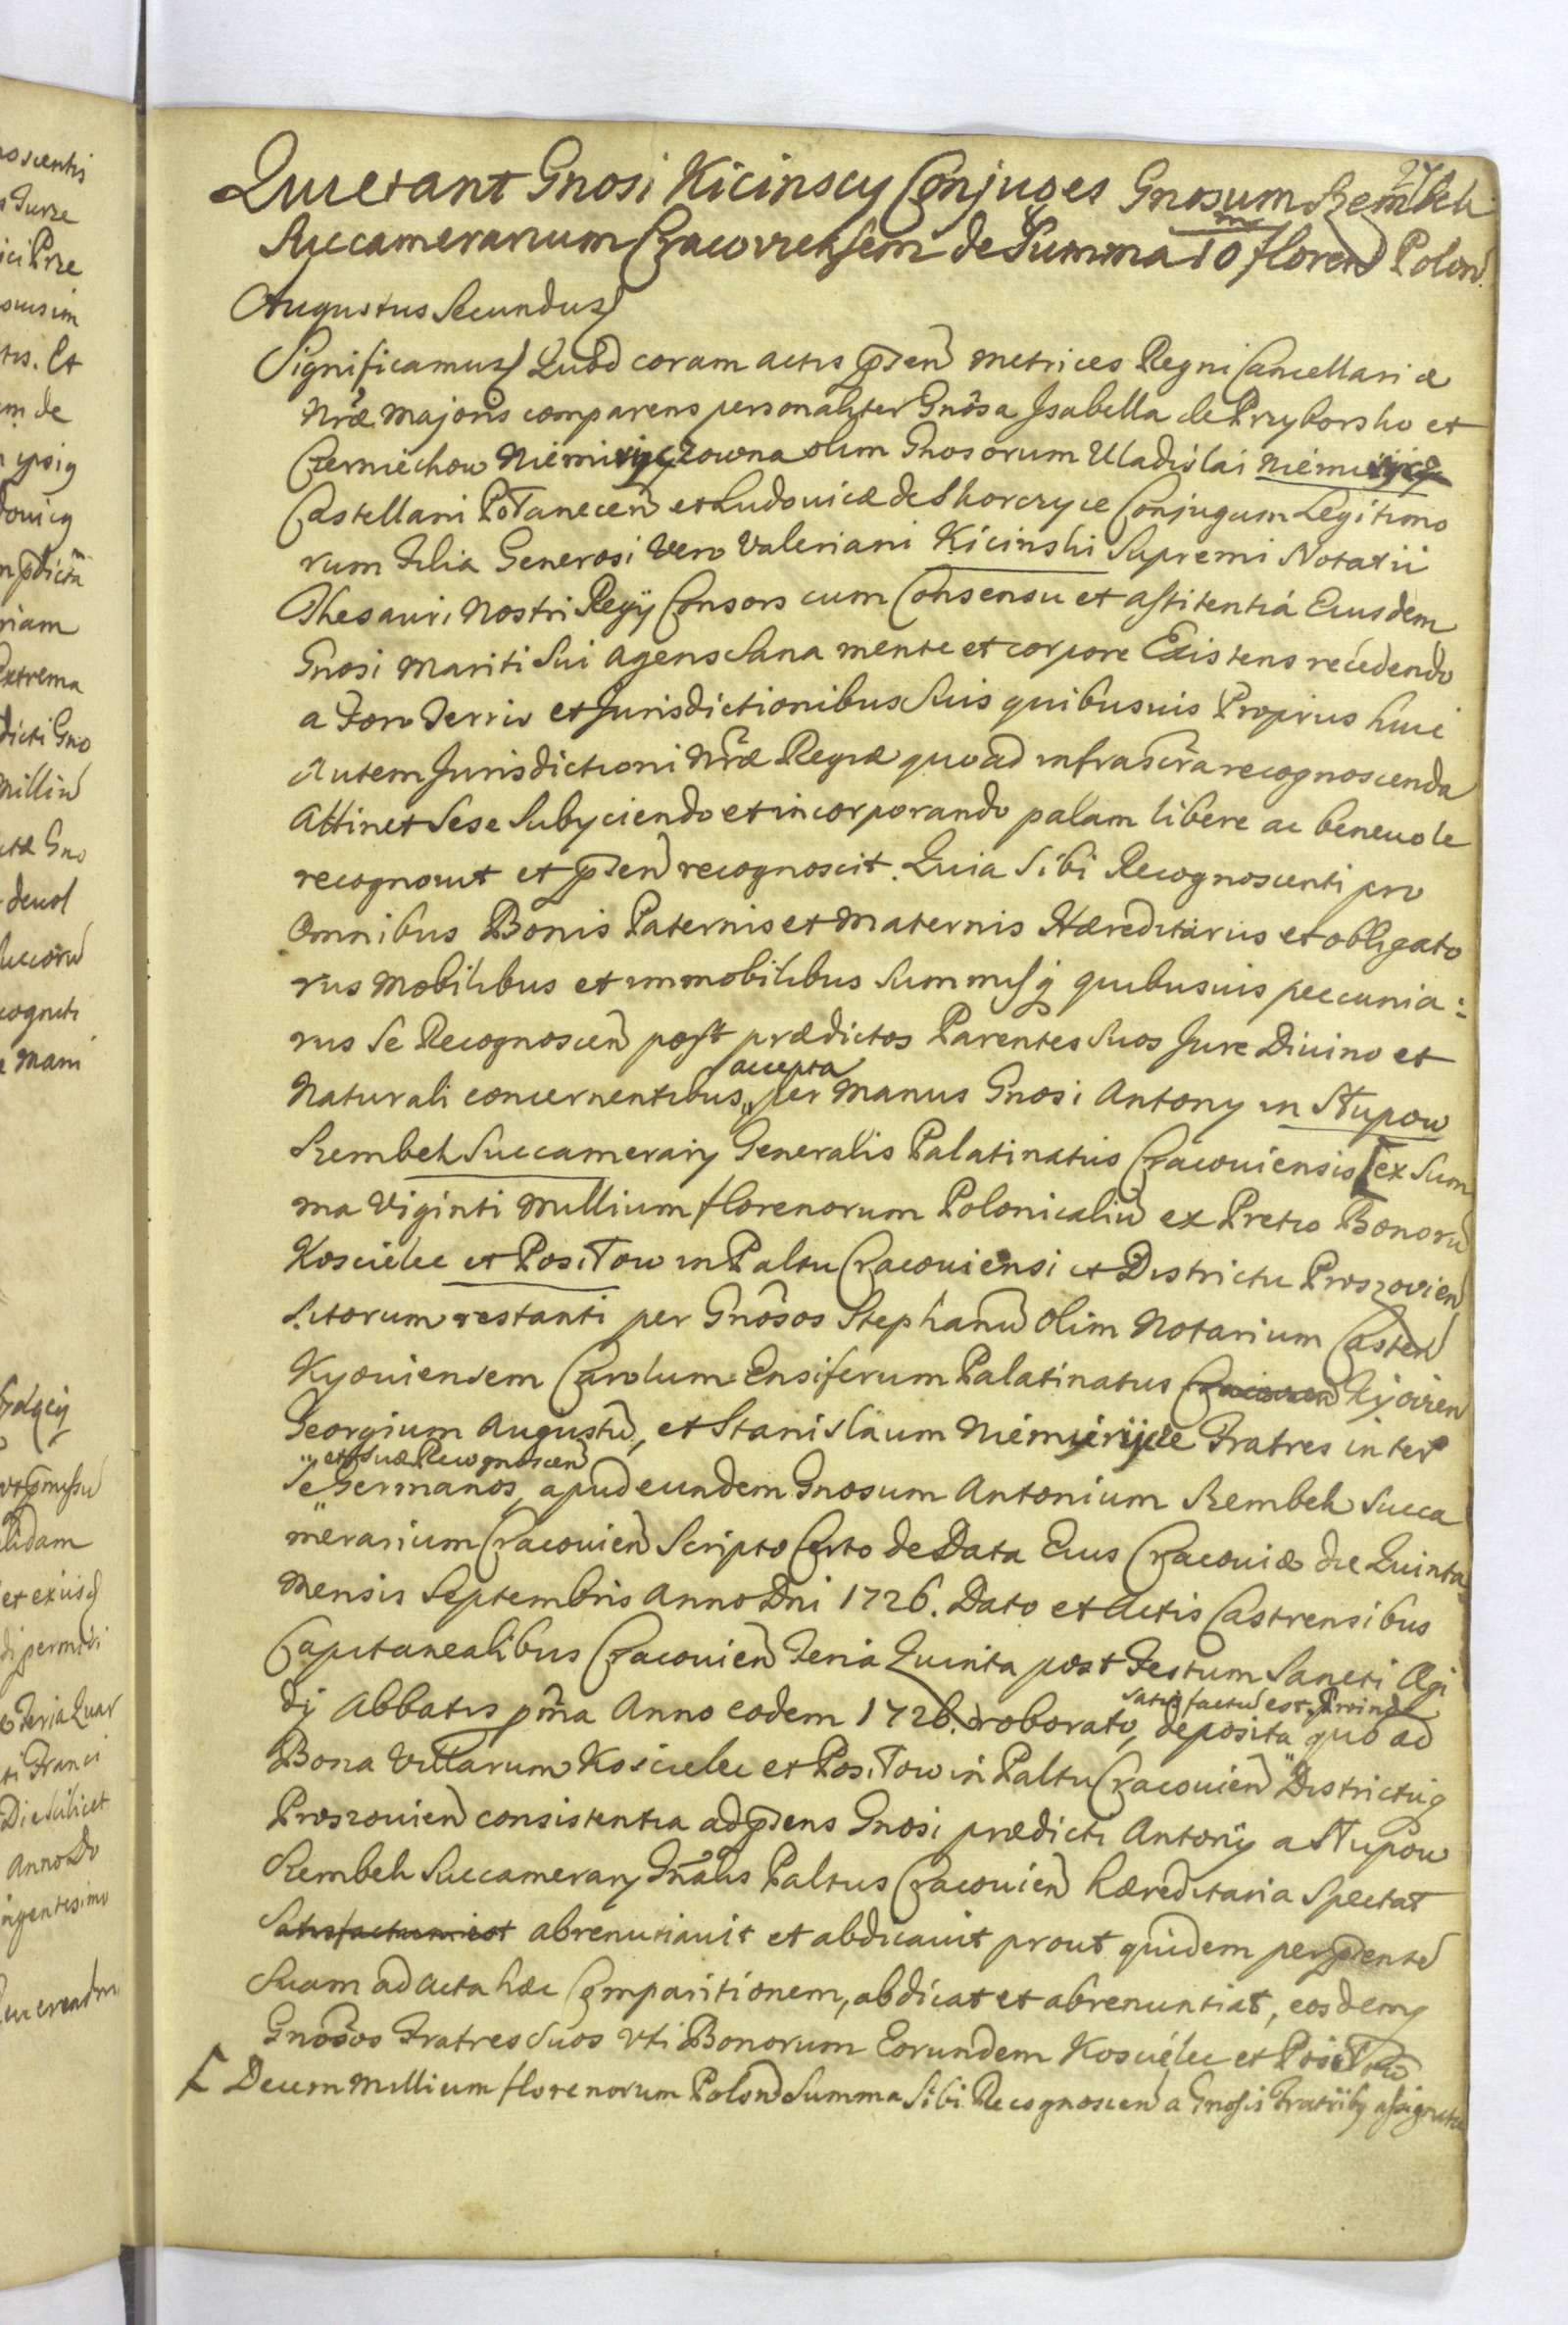 27
Quietant Gnosi Kicinscy Conjuges Gnosum Szembek
Succamerarium Cracoviensem de Summa 10 m floren Polon.
Augustus Secundus
Significamus Quod coram actis pnsen Metrices Regni Cancellariæ
Nræ Majoris comparens personaliter Gnôsa Isabella de Przyborsko et
Czerniechow Niemiryczowna olim Gnosorum Uladislai Niemirycz
Castellani Połanecen et Ludovicæ de Skorczyce Conjugum Legitimo
rum Filia Generosi Vero Valeriani Kicinski Supremi Notarii
Thesauri Nostri Regij Consors cum Consensu et assistentiá Eiusdem
Gnosi Mariti Sui agens Sana mente et corpore Existens recedendo
a Foro Terris et Jurisdictionibus Suis quibusvis Proprius huic
Autem Jurisdictioni Nræ Regiæ quoad infrascra recognoscenda
Attinet Sese Subyciendo et incorporando palam libere ac benevole
recognovit et pnsen recognoscit. Quia Sibi Recognoscenti pro
Omnibus Bonis Paternis et Maternis Hæreditariis et obligato
riis Mobilibus et immobilibus Summisq quibusvis peccunia:
riis Se Recognoscen post prædictos Parentes Suos Jure Divino et
accepta
Naturali concernentibus, per Manus Gnosi Antony in Słupow
Szembek Succamerarij Generalis Palatinatus Cracoviensis [ ex Sum
ma Viginti Millium florenorum Polonicaliu ex Pretio Bonoru
Koscielec et Posiłow in Paltu Cracoviensi et Districtu Proszovien
Sitorum restanti per Gnôsos Stephanu olim Notarium Castren
Kyoviensem Carolum Ensiferum Palatinatus Cracovien Kijovien
Georgium Augustu, et Stanislaum Niemirycze Fratres inter
et Suæ Recognoscen
Se Germanos, apud eundem Gnosum Antonium Szembek Succa
merarium Cracovien Scripto Certo de Data Eius Cracoviæ die Quinta
Mensis Septembris Anno Dni 1726. Dato et Actis Castrensibus
Capitanealibus Cracovien Feria Quinta post Festum Sancti Ægi
satisfactu est. Proinde
dij Abbatis pma Anno eodem 1726. roborato, deposita quo ad
Bona Villarum Koscielec et Posiłow in Paltu Cracovien Districtuq
Proszovien consistentia ad pnsens Gnosi prædicti Antonij a Słupow
Szembek Succamerary Gnalis Paltus Cracovien hæreditaria Spectat
Satisfactum est abrenutiavit et abdicavit prout quidem per pnsente
Suam ad Acta hæc Comparitionem, abdicat et abrenuntiat, eosdemq
Gnôsos Fratres Suos Uti Bonorum Eorundem Koscielec et Posiłow
[ Decem Millium florenorum Polon Summa Sibi Recognoscen a Gnosis Fratribq assignata